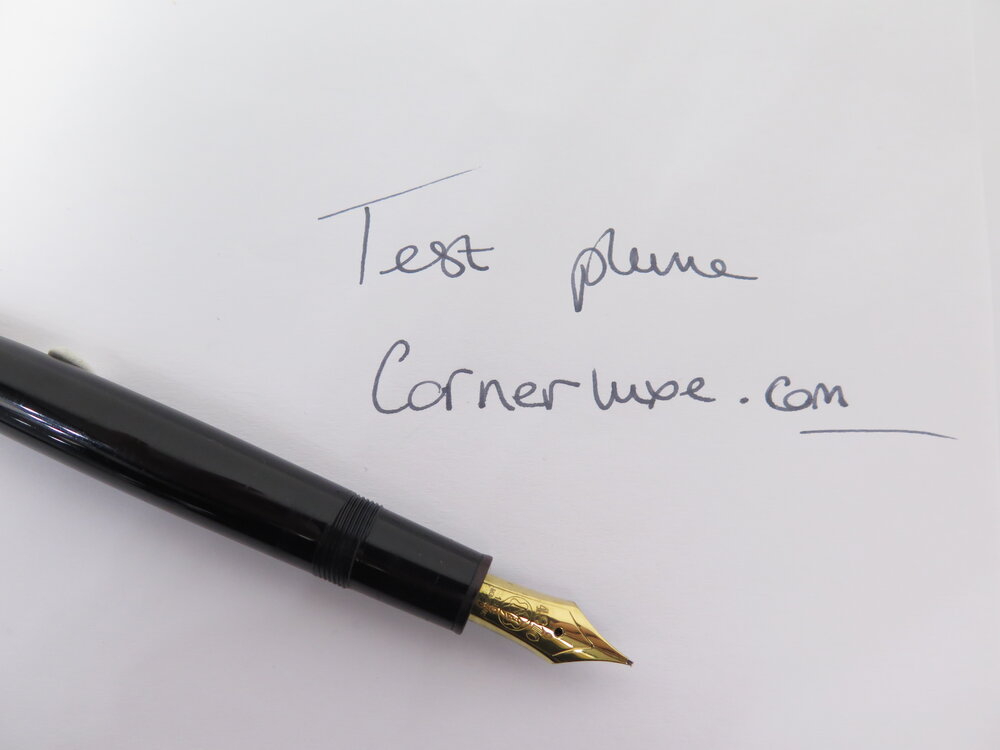 Test plume
Cornerluxe.com
4810